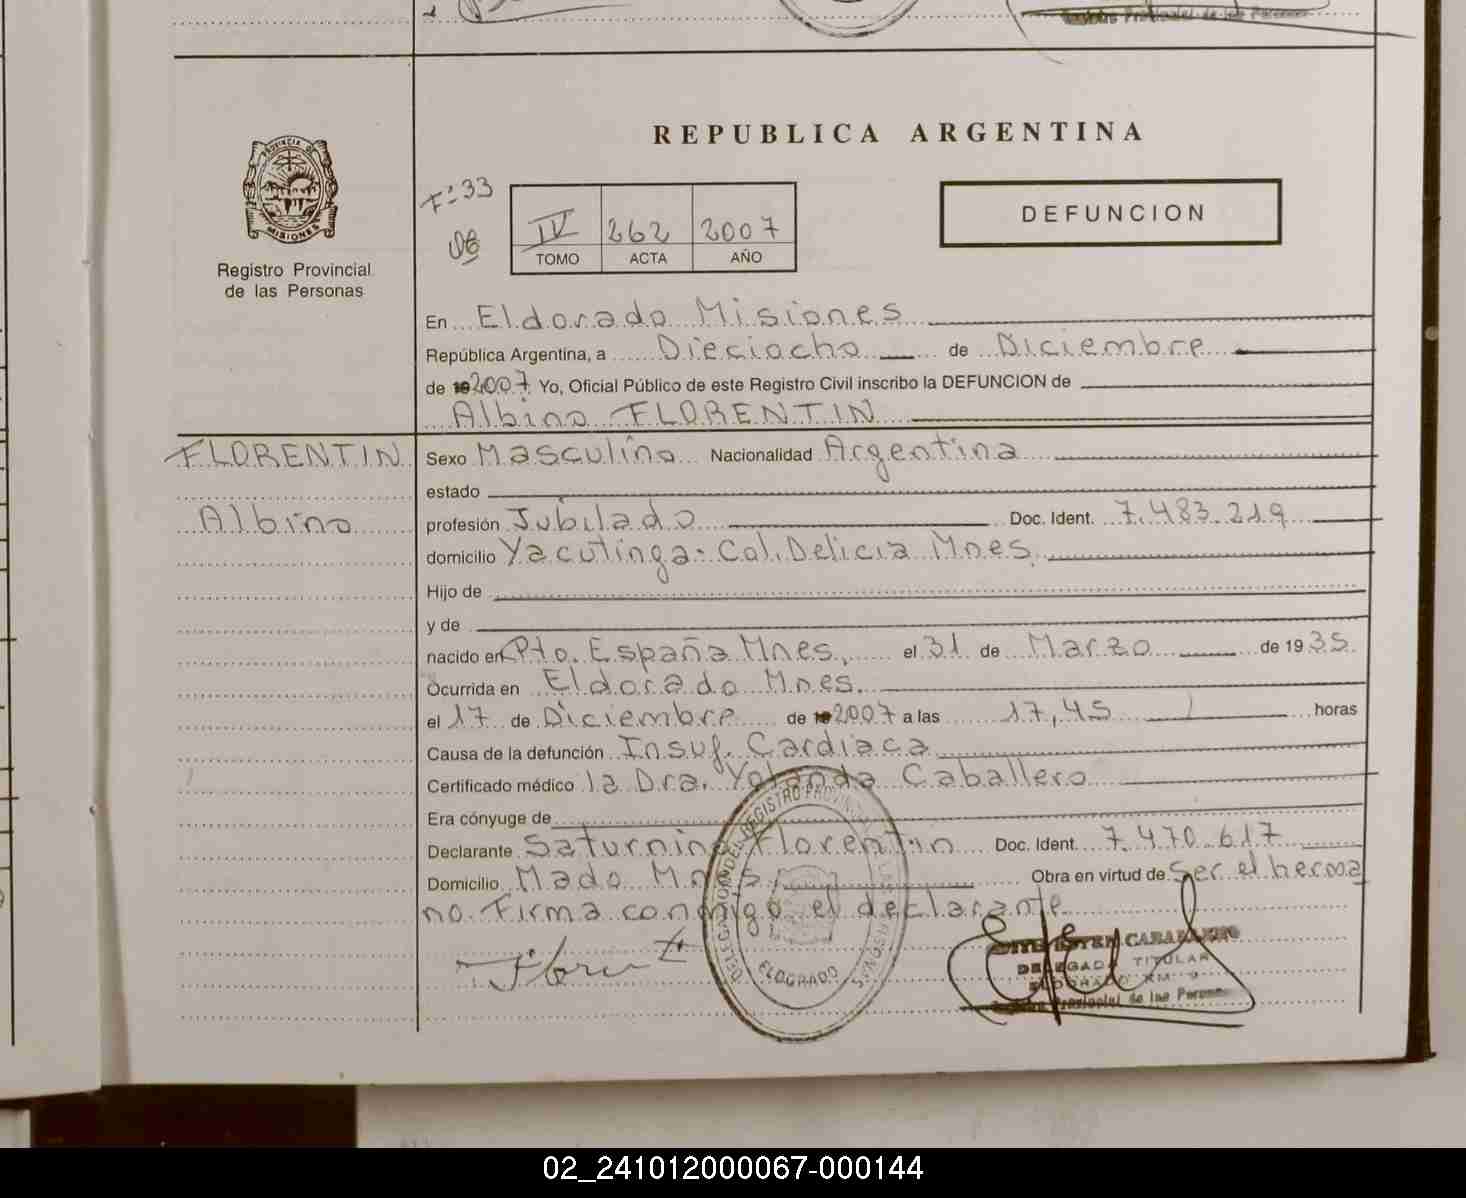 Registro Provincial de las Personas
REPUBLICA ARGENTINA
PROVINCIA DE
MISIONES
Registro Provincial
de las Personas
Fº 33
IV 262 2007
TOMO ACTA AÑO
DEFUNCION
En Eldorado Misiones
República Argentina, a Dieciocho de Diciembre
de 2007 Yo, Oficial Público de este Registro Civil inscribo la DEFUNCION de
Albino FLORENTIN
FLORENTIN
Albino
Sexo Masculino Nacionalidad Argentina
estado
profesión Jubilado Doc. Ident. 7.483.219
domicilio Yacutinga-Col.Delicia Mnes.
Hijo de
y de
nacido en Pto. España Mnes. el 31 de Marzo de 1935
Ocurrida en Eldorado Mnes.
el 17 de Diciembre de 2007 a las 17,45 horas
Causa de la defunción Insuf. Cardiaca
Certificado médico la Dra. Yolanda Caballero
Era cónyuge de
Declarante Saturnino Florentin Doc. Ident. 7.470.617
Domicilio Mado Mnes, Obra en virtud de Ser el herma
no. Firma conmigo el declarante
ELDORADO
CABALLERO
DELEGADA TITULAR
ELDORADO KM 9
Registro Provincial de las Personas
02_241012000067-000144